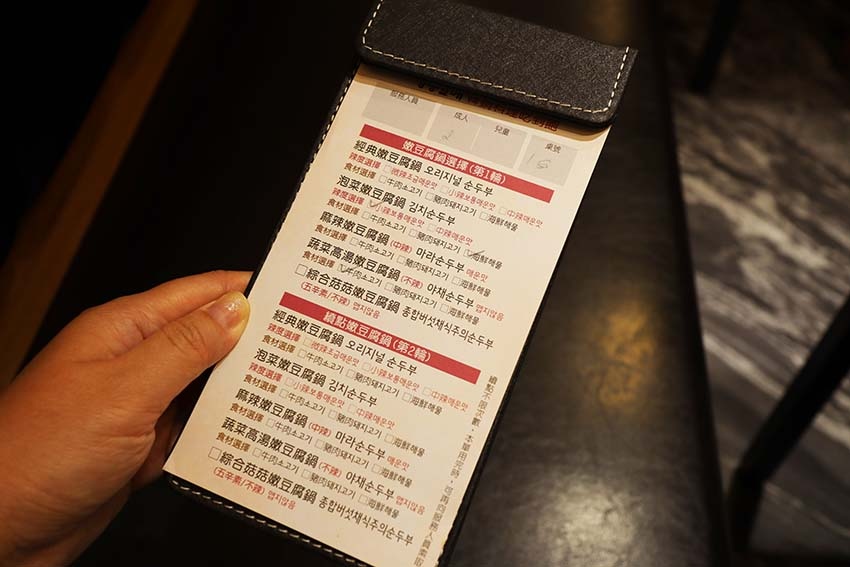 服務人員
成人
兒童
桌號
2
嫩豆腐鍋選擇(第1輪)
經典嫩豆腐鍋 오리지널 순두부
辣度選擇 □微辣조금매운맛 □小辣보통매운맛 □中辣매운맛
食材選擇 □牛肉소고기 □豬肉돼지고기 □海鮮해물
泡菜嫩豆腐鍋 김치순두부
辣度選擇 □小辣보통매운맛 □中辣매운맛
食材選擇 □牛肉소고기 □豬肉돼지고기 □海鮮해물
麻辣嫩豆腐鍋(中辣) 마라순두부 매운맛
食材選擇 □牛肉소고기 □豬肉돼지고기 □海鮮해물
蔬菜高湯嫩豆腐鍋(不辣) 야채순두부 맵지않음
食材選擇 □牛肉소고기 □豬肉돼지고기 □海鮮해물
□綜合菇菇嫩豆腐鍋 종합버섯채식주의순두부
(五辛素/不辣) 맵지않음
續點嫩豆腐鍋(第2輪)
經典嫩豆腐鍋 오리지널 순두부
辣度選擇 □微辣조금매운맛 □小辣보통매운맛 □中辣매운맛
食材選擇 □牛肉소고기 □豬肉돼지고기 □海鮮해물
泡菜嫩豆腐鍋 김치순두부
辣度選擇 □小辣보통매운맛 □中辣매운맛
食材選擇 □牛肉소고기 □豬肉돼지고기 □海鮮해물
麻辣嫩豆腐鍋(中辣) 마라순두부 매운맛
食材選擇 □牛肉소고기 □豬肉돼지고기 □海鮮해물
蔬菜高湯嫩豆腐鍋(不辣) 야채순두부 맵지않음
食材選擇 □牛肉소고기 □豬肉돼지고기 □海鮮해물
□綜合菇菇嫩豆腐鍋 종합버섯채식주의순두부
(五辛素/不辣) 맵지않음
續點不限次數，本單用完時，可再向服務人員索取